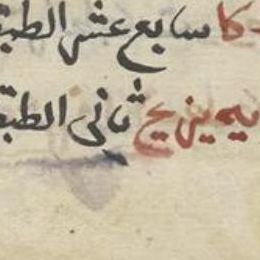 كا سابع عشر الطبق
يه يزيج ثانى الطبق